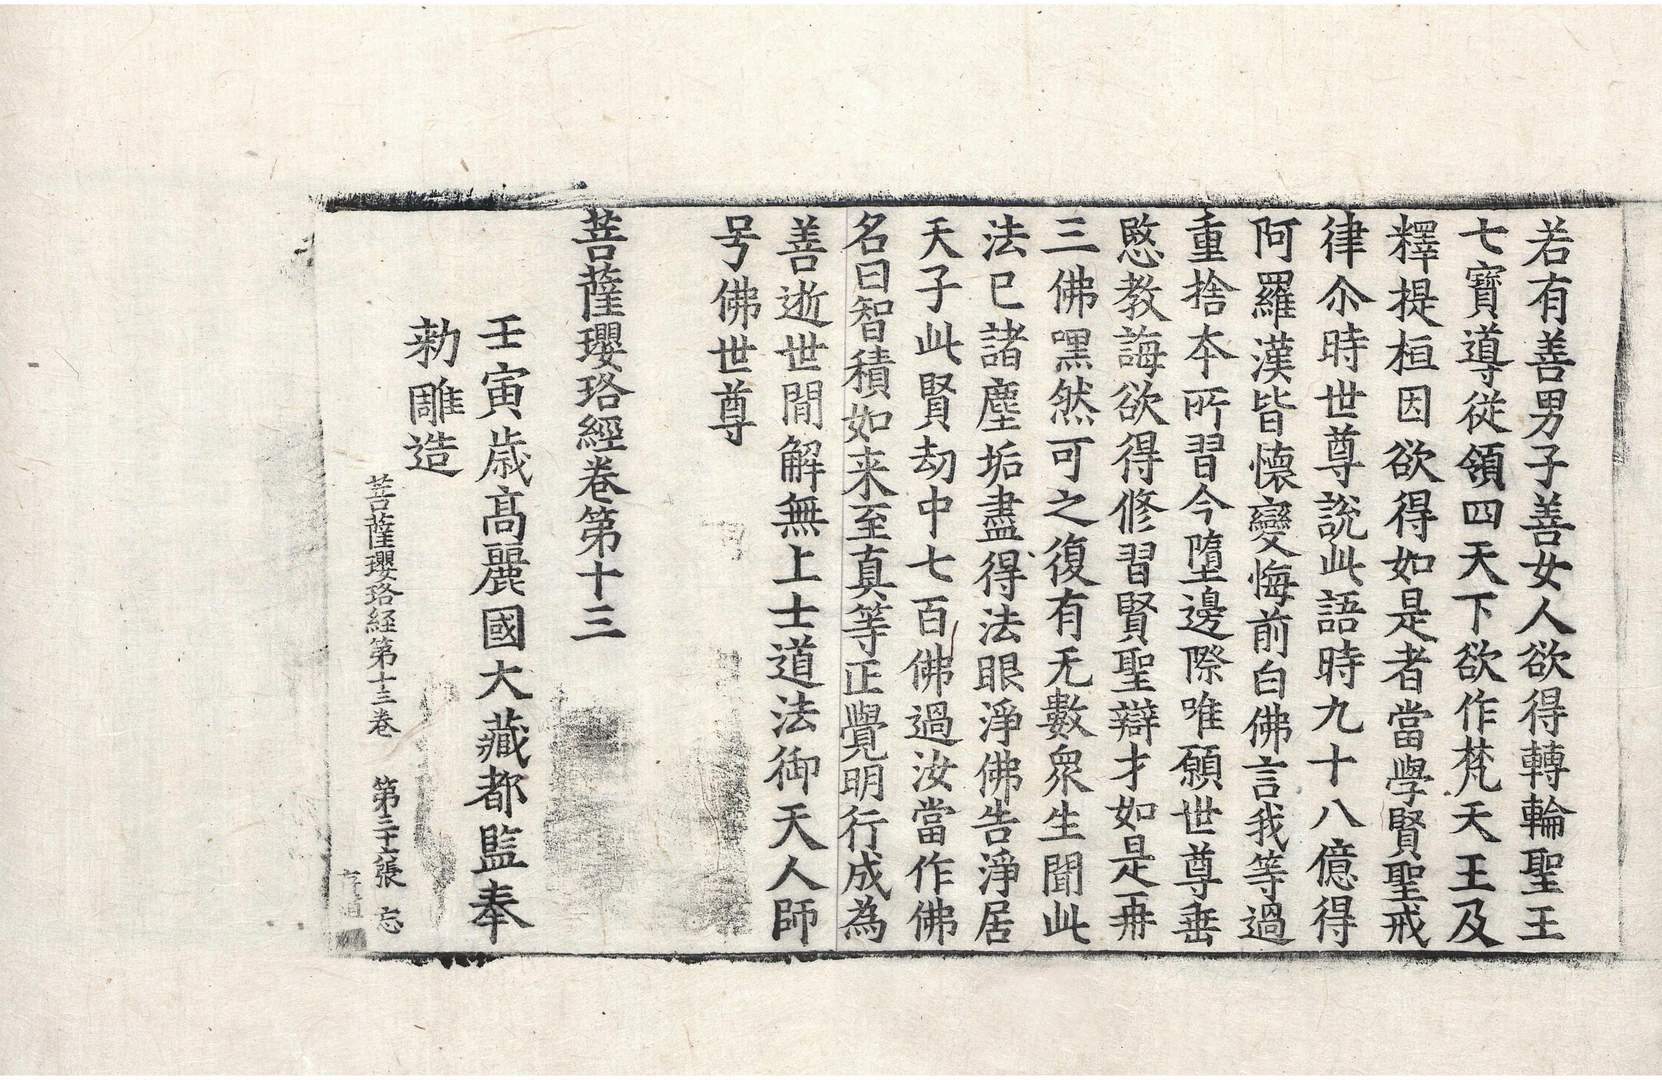 若有善男子善女人欲得轉輪聖王
七寶導從領四天下欲作梵天王及
釋提桓因欲得如是者當學賢聖戒
律尒時世尊說此語時九十八億得
阿羅漢皆懷變悔前白佛言我等過
重捨本所習今墮邊際唯願世尊垂
愍教誨欲得修習賢聖辯才如是再
三佛嘿然可之復有无數衆生聞此
法已諸塵垢盡得法眼淨佛告淨居
天子此賢劫中七百佛過汝當作佛
名曰智積如来至真等正覺明行成為
善逝世閒解無上士道法御天人師
号佛世尊
菩薩瓔珞經卷第十三
壬寅歳高麗國大藏都監奉
勑雕造
菩薩瓔珞経第十三卷 第三十六張 忘